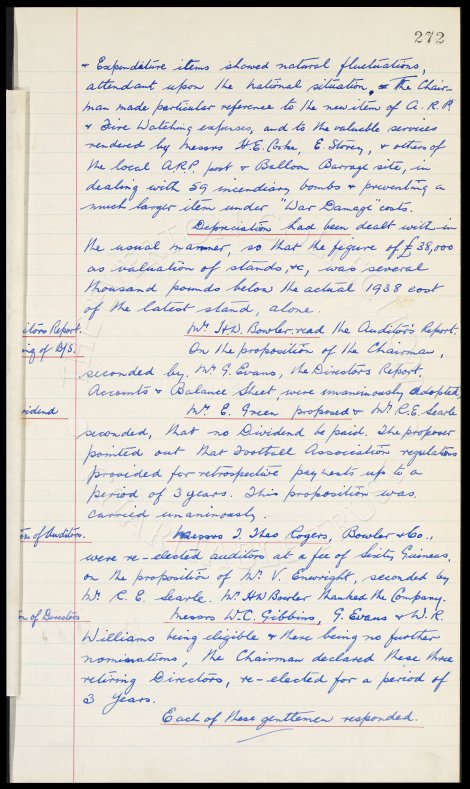 272
& Expenditure items showed natural fluctuations,
attendant upon the national situation. The Chair-
man made particular reference to the new item of A.R.P.
& Fire Watching expenses, and to the valuable services
rendered by Messrs H.E. Cooke, E. Storey, & others of
the local A.R.P. post & Balloon Barrage site, in
dealing with 59 incendiary bombs & preventing a
much larger item under "War Damage" costs.
Depreciation had been dealt with in
the usual manner, so that the figure of £38,000
as valuation of stands, &c, was several
thousand pounds below the actual 1938 cost
of the latest stand, alone.
itors Report. Mr H.W. Bowler read the Auditors Report.
ng of B/S. On the proposition of the Chairman,
seconded by Mr G. Evans, the Directors Report,
Accounts & Balance Sheet, were unanimously adopted.
vidend Mr E. Green proposed & Mr R.E. Searle
seconded, that no Dividend be paid. The proposer
pointed out that Football Association regulations
provided for retrospective payments up to a
period of 3 years. This proposition was
carried unanimously.
on of Auditors. Messrs J. Theo Rogers, Bowler & Co.,
were re-elected auditors at a fee of Sixty Guineas,
on the proposition of Mr V. Enwright, seconded by
Mr R.E. Searle. Mr H.W Bowler thanked the Company.
on of Directors Messrs W.C. Gibbins, G. Evans & W.R.
Williams being eligible & there being no further
nominations, the Chairman declared these three
retiring Directors, re-elected for a period of
3 years.
Each of these gentlemen responded.